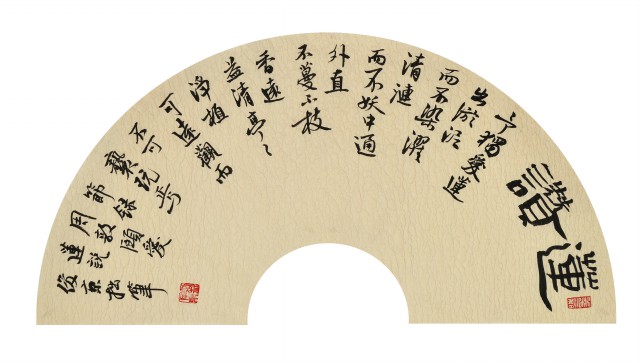 讚蓮
予獨愛蓮
出淤泥
而不染濯
清漣
而不妖中通
外直
不蔓不枝
香遠
益清亭々
淨植
可遠觀而
不可
褻玩焉
節錄
周敦頤愛
蓮說
俊京松筆